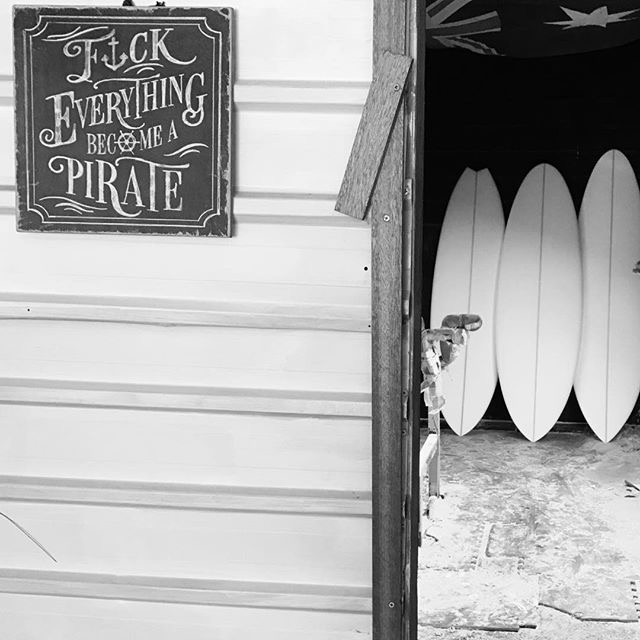 F⚓CK
EVERYTHING
BECOME A
PIRATE